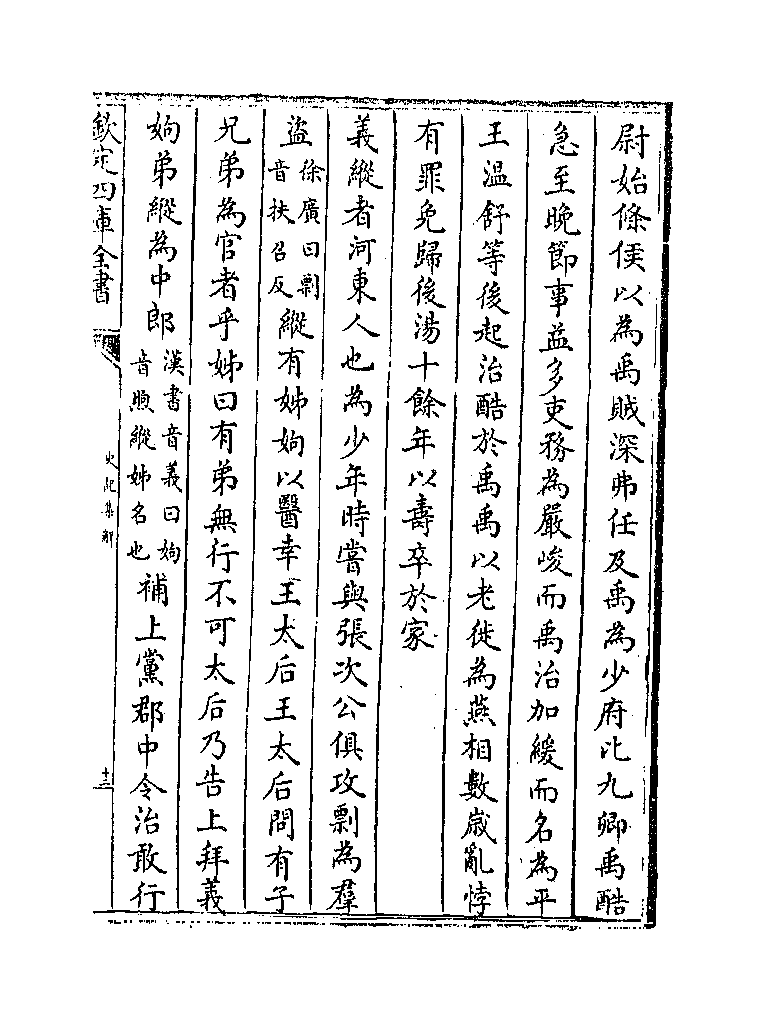 尉始條侯以為禹賊深弗任及禹為少府比九卿禹酷
急至晩節事益多吏務為嚴峻而禹治加緩而名為平
王温舒等後起治酷於禹禹以老徙為燕相數嵗亂悖
有罪免歸後湯十餘年以壽卒於家
義縱者河東人也為少年時嘗與張次公俱攻剽為羣
盜徐廣曰剽音扶召反縱有姊姁以醫幸王太后王太后問有子
兄弟為官者乎姊曰有弟無行不可太后乃告上拜義
姁弟縱為中郎漢書音義曰姁音煦縱姊名也補上黨郡中令治敢行
欽定四庫全書
史記集解
十三